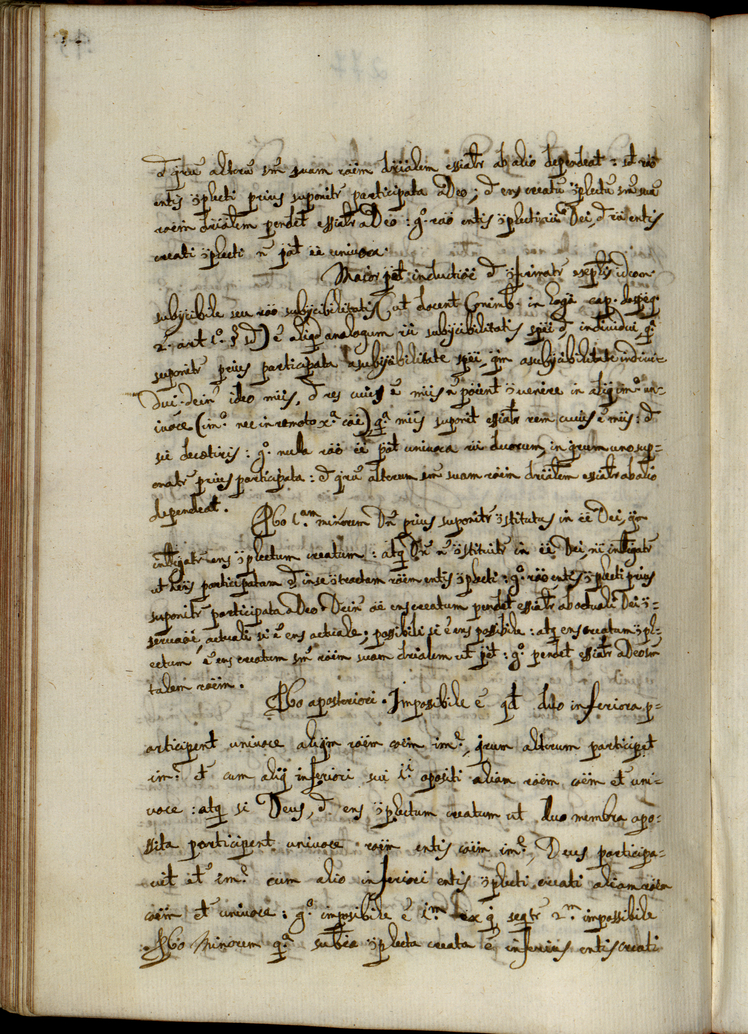 & qrũ alterũ sm̃ suam rãem dr̃ialem essialr̃ ab alio dependeat: sed rão
entis ɔ̃plecti prius suponitr̃ participata a Deo; & ens creatũ ɔ̃plectũ sm̃ suã
rãem dr̃ialem pendet essialr̃ a Deo: g.º rão entis ɔ̃plecti rũ Dei, & rũ entis
creati ɔ̃plecti ñ pãt ẽe univoca.
Maior pãt inductiõe & ɔ̃firmatr̃ exẽplis ideom
subijcibile seu rão subijcibilitatis (ut docent Conimb. in logã cap. de speç.
2. art. 1.º § 1d) ẽ aliqd analogum rũ subijcibilitatis speĩ & individui, q.ª
suponitr̃ prius participata a subijcibilitate speĩ, qm̃ a subijcibilitate indivi-
dui. dein ideo mẽis, & res cuius ẽ mẽis ñ põent ɔ̃venire in aliq̃ im.º un-
ivoce (im.º nec in remoto x.ª cãe), q.ª mẽis suponit essialr̃ rem cuius ẽ mẽis: &
sic de cẽteris: g.º nula rão ẽe pãt univoca rũ duorum, in qrum uno sup-
onatr̃ prius participata: & qrũ alterum sm̃ suam rãem dr̃ialem essialr̃ ab alio
dependeat.
Pbo 1.am minorem Dñ prius suponitr̃ ɔ̃stitutus in ẽe Dei, qm
intligatr̃ ens ɔ̃plectum creatum: atq Dñ ñ ɔ̃stituitr̃ in ẽe Dei, ni intligatr̃
ut hẽns participatam & in se ɔ̃tractam rãem entis ɔ̃plecti: g.º rão entis ɔ̃plecti prius
suponitr̃ participata a Deo. Dein õe ens creatum pendet essialr̃ ab actuali Dei ɔ̃-
servaõe, actuali si ẽ ens actuale; possibili si ẽ ens possibile: atq ens creatum ɔ̃pl-
ectum ẽ ens creatum sm̃ rãem suam dr̃ialem ut pãt: g.º pendet essialr̃ a Deo sm̃
talem rãem.
Pbo a posteriori. Impossibile ẽ qd duo inferiora p-
articipent univoce aliqm̃ rãem cõem im.º, qrum alterum participet
im.º et cum aliq̃ inferiori sui 1i apositi aliam rãem cõem et uni-
voce: atq si Deus, & ens ɔ̃plectum creatum ut duo membra apo-
ssita participent univoce rãem entis cõem im.º, Deus participa-
vit et im.º cum alio inferiori entis ɔ̃plecti creati aliam rãem
cõem et univoce: g.º imposibile ẽ 1.m ex q̃ seqtr̃ 2.m impossibile
Pbo Minorem q.ª subtĩa ɔ̃plecta creata ẽ inferius entis creati